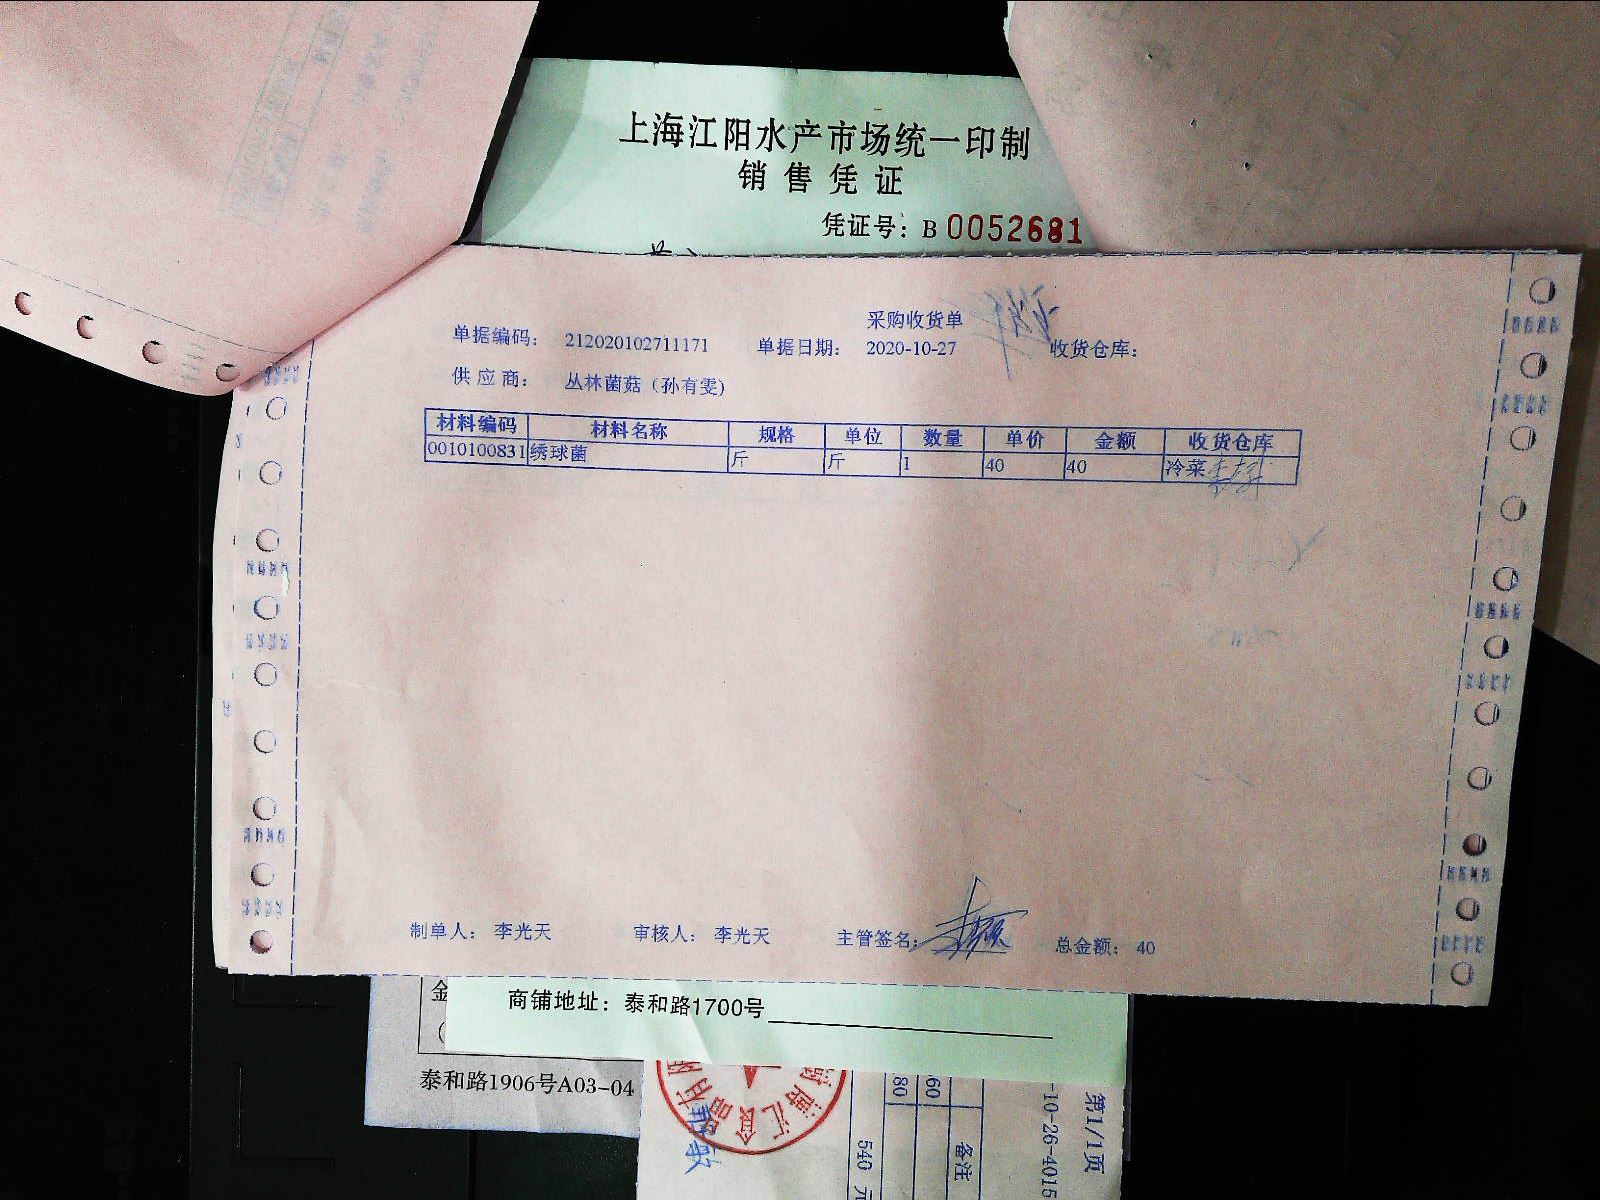 上海江阳水产市场统一印制
销售凭证
凭证号：B 0052681
采购收货单
单据编码： 212020102711171 单据日期： 2020-10-27 收货仓库：
供应商： 丛林菌菇（孙有雯）
材料编码 材料名称 规格 单位 数量 单价 金额 收货仓库
0010100831 绣球菌 斤 斤 1 40 40 冷菜
制单人： 李光天 审核人： 李光天 主管签名： 总金额： 40
金
商铺地址：泰和路1700号
泰和路1906号A03-04
食品有限
60
80
备注
540 元
-10-26-4015
第1/1页